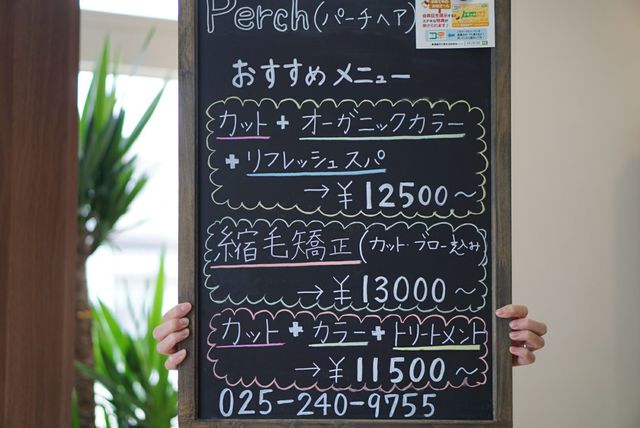 Perch(パーチヘア)
おすすめメニュー
カット+オーガニックカラー
+リフレッシュスパ
→¥12500〜
縮毛矯正(カット・ブロー込み)
→¥13000〜
カット+カラー+トリートメント
→¥11500〜
025-240-9755